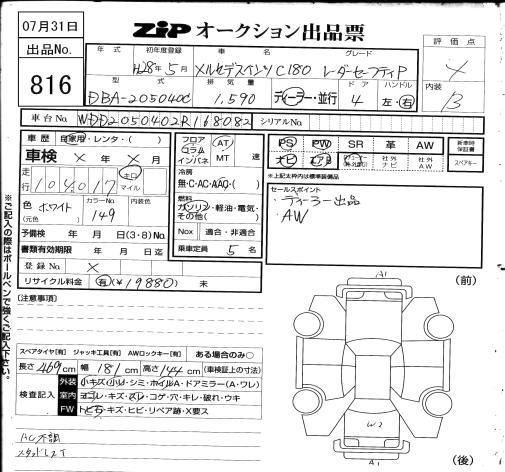 07月31日
出品No.
816
ZIP オークション出品票
年式 初年度登録 車名 グレード
H28年5月 メルセデスベンツC180 レーダーセーフティP
型式 排気量 ドア ハンドル
DBA-205040C 1,590 ディーラー・並行 4 左・右
評価点
X
内装
B
車台No. WDD2050402R168082 シリアルNo.
車歴 自家用・レンタ・( )
車検 X 年 X 月
走行 104017 キロ マイル
色 (元色) ホワイト カラーNo. 149 内装色
予備検 年 月 日(3・8)No.
書類有効期限 年 月 日
登録No. X
リサイクル料金 有(¥19880) 未
フロア コラム インパネ AT MT 速
冷房
無・C・AC・AAC・( )
燃料
ガソリン・軽油・電気・その他( )
Nox 適合・非適合
乗車定員 5 名
PS PW SR 革 AW
ナビ 社外ナビ 社外AW
新車時保証書
スペアキー
※上記太枠内は標準装備品
セールスポイント
・ディーラー出品
・AW
※ご記入の際はボールペンで強くご記入下さい。
[注意事項]
スペアタイヤ[有] ジャッキ工具[有] AWロックキー[有] ある場合のみ○
長さ 469cm 幅 181cm 高さ 144cm (車検証上の寸法)
検査記入
外装 小キズ・小凹・シミ・ホイルA・ドアミラー(A・ワレ)
室内 ヨゴレ・キズ・スレ・コゲ・穴・キレ・破れ・ウキ
FW トビ石・キズ・ヒビ・リペア跡・X要ス
AC不調
スタッドレスT
(前)
A1
W2
A1
(後)